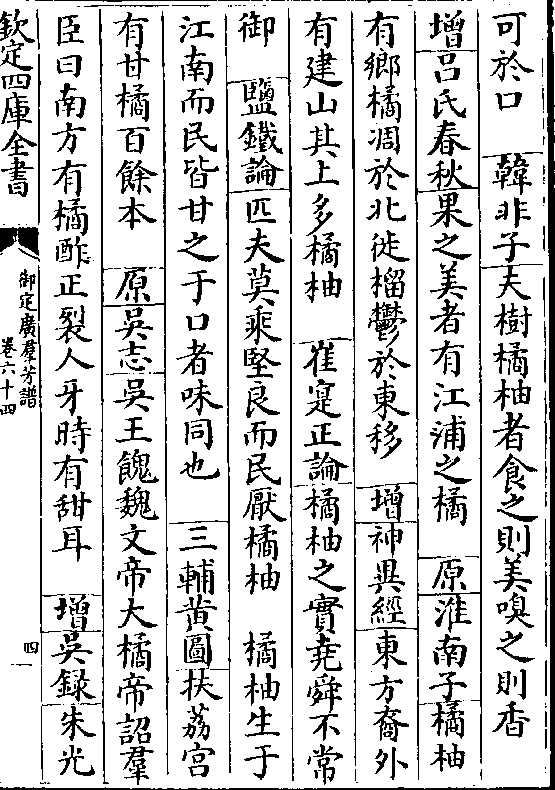 可於口　韓非子夫樹橘柚者食之則美嗅之則香
增呂氏春秋果之美者有江浦之橘　原淮南子橘柚
有鄉橘凋於北徙榴鬱於東移　增神異經東方裔外
有建山其上多橘柚　崔寔正論橘柚之實堯舜不常
御　鹽鐵論匹夫莫乘堅良而民厭橘柚　橘柚生于
江南而民皆甘之于口者味同也　三輔黃圖扶荔宮
有甘橘百餘本　原吳志吳王餽魏文帝大橘帝詔羣
臣曰南方有橘酢正裂人牙時有甜耳　增吳録朱光
欽定四庫全書
御定廣羣芳譜
卷六十四
四